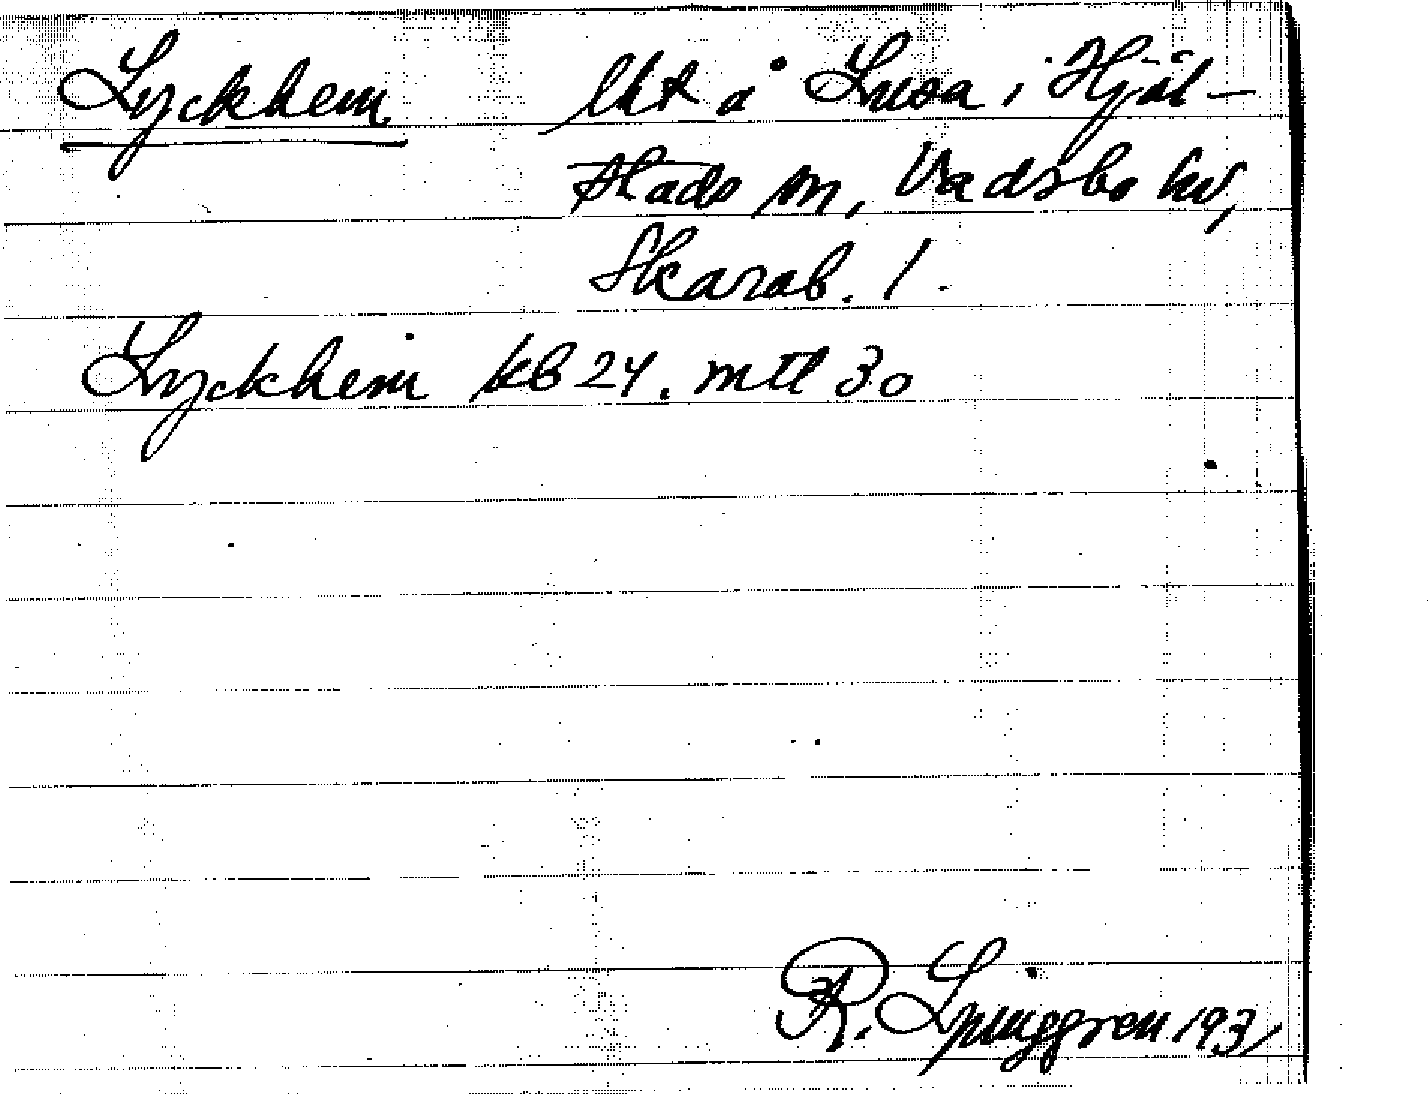 Lyckhem lht å Lusa i Hjäl-
stads sn, Vadsbo hd,
Skarab. l.
Lyckhem kb 24. mtl 30
R. Ljunggren 1931